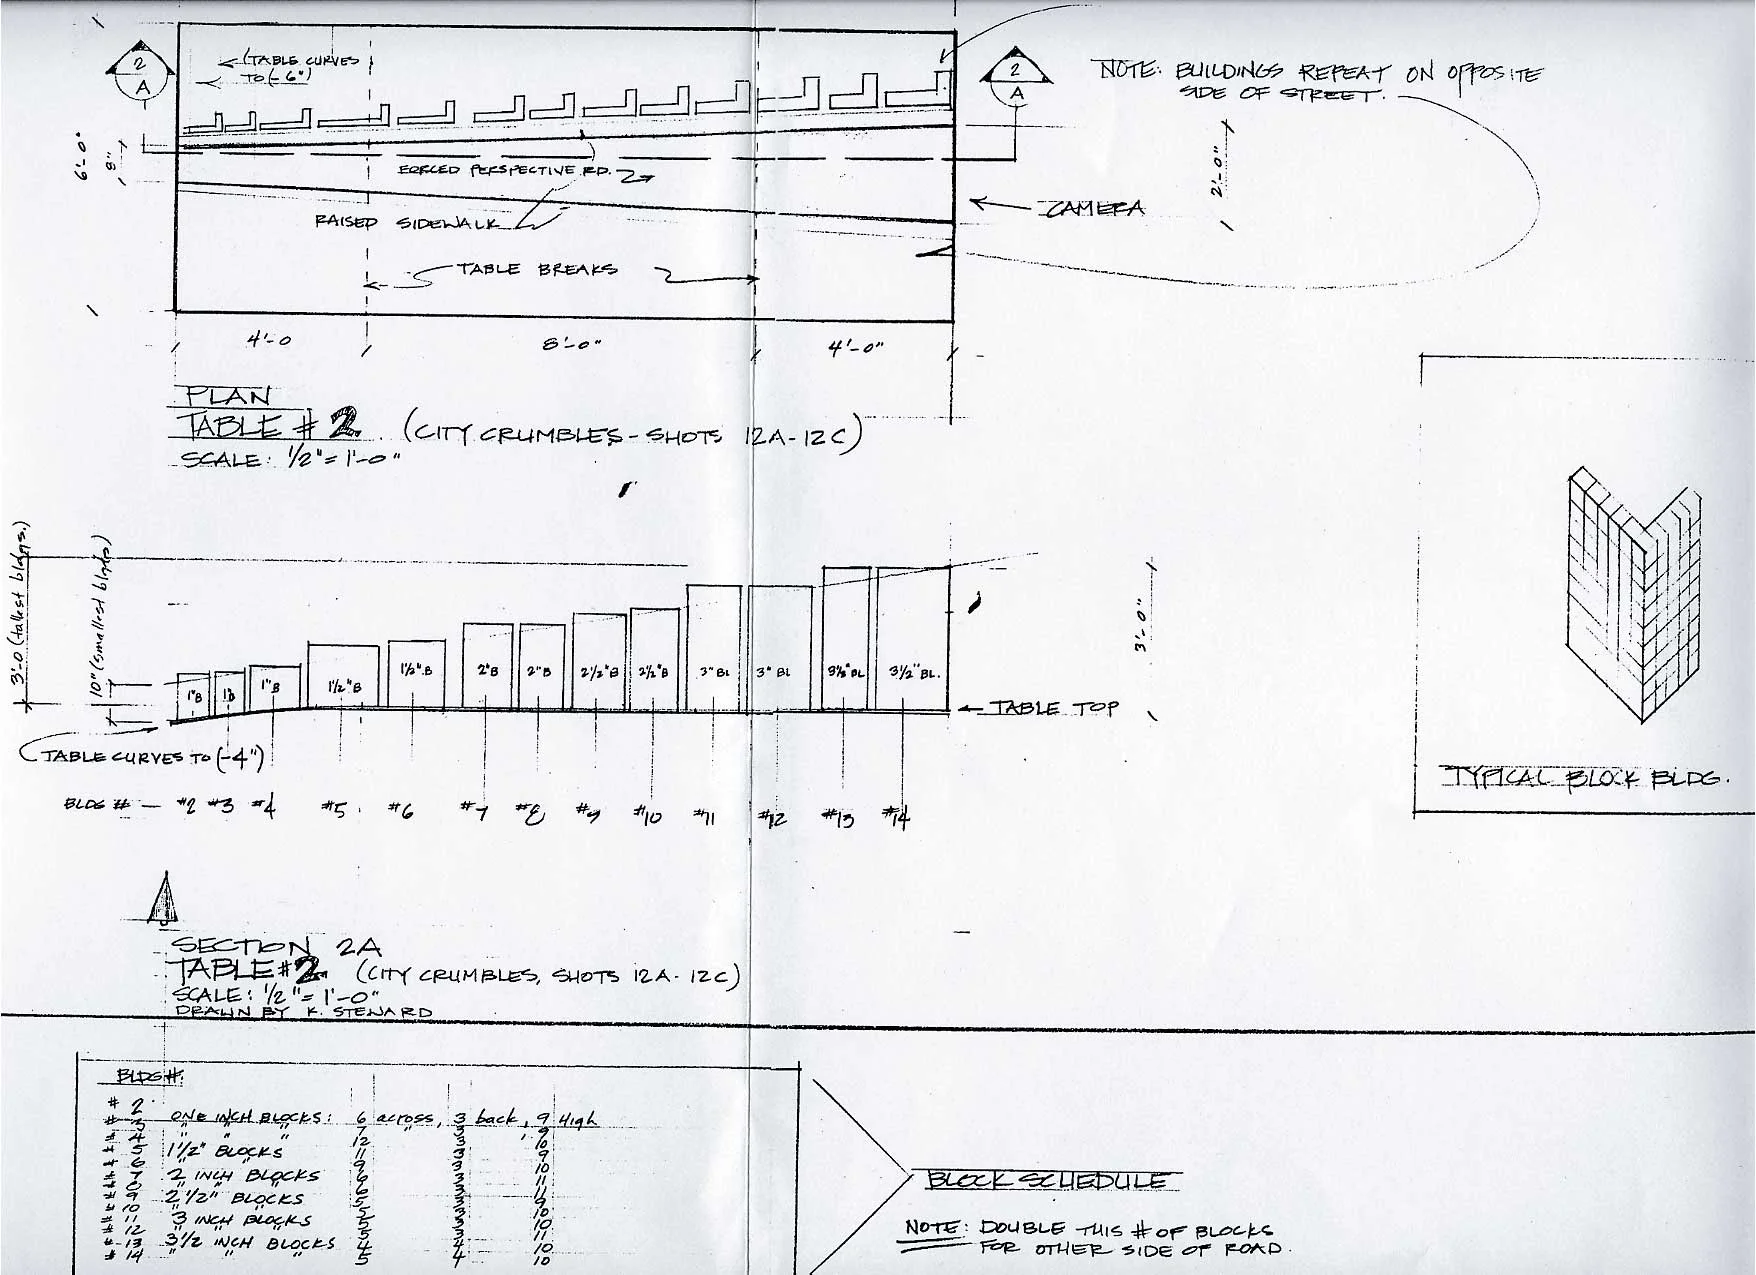 2
A
(TABLE CURVES
TO (-6")
2
A
NOTE: BUILDINGS REPEAT ON OPPOSITE
SIDE OF STREET.
6'-0"
8"
FORCED PERSPECTIVE RD.
2'-0"
CAMERA
RAISED SIDEWALK
TABLE BREAKS
4'-0
8'-0"
4'-0"
PLAN
TABLE #2. (CITY CRUMBLES - SHOTS 12A-12C)
SCALE: 1/2" = 1'-0"
3'-0 (tallest bldgs.)
10" (smallest bldgs)
1"B
1B
1"B
1½"B
1½"B
2"B
2"B
2½"B
2½"B
3" BL
3" BL
3½" BL
3½" BL.
3'-0"
TABLE TOP
TABLE CURVES TO (-4")
BLDG # — #2 #3 #4 #5 #6 #7 #8 #9 #10 #11 #12 #13 #14
TYPICAL BLOCK BLDG.
SECTION 2A
TABLE #2 (CITY CRUMBLES, SHOTS 12A-12C)
SCALE: 1/2" = 1'-0"
DRAWN BY K. STEWARD
BLDG #:
# 2
# 3 ONE INCH BLOCKS: 6 across, 3 back, 9 High
# 4 " " " 7 3 9
# 5 1½" BLOCKS 12 3 10
# 6 11 3 9
# 7 2 INCH BLOCKS 9 3 10
# 8 6 3 11
# 9 2½" BLOCKS 6 3 11
# 10 5 3 9
# 11 3 INCH BLOCKS 5 3 10
# 12 " " " 5 3 10
# 13 3½ INCH BLOCKS 4 4 10
# 14 " " " 5 4 10
BLOCK SCHEDULE
NOTE: DOUBLE THIS # OF BLOCKS
FOR OTHER SIDE OF ROAD.